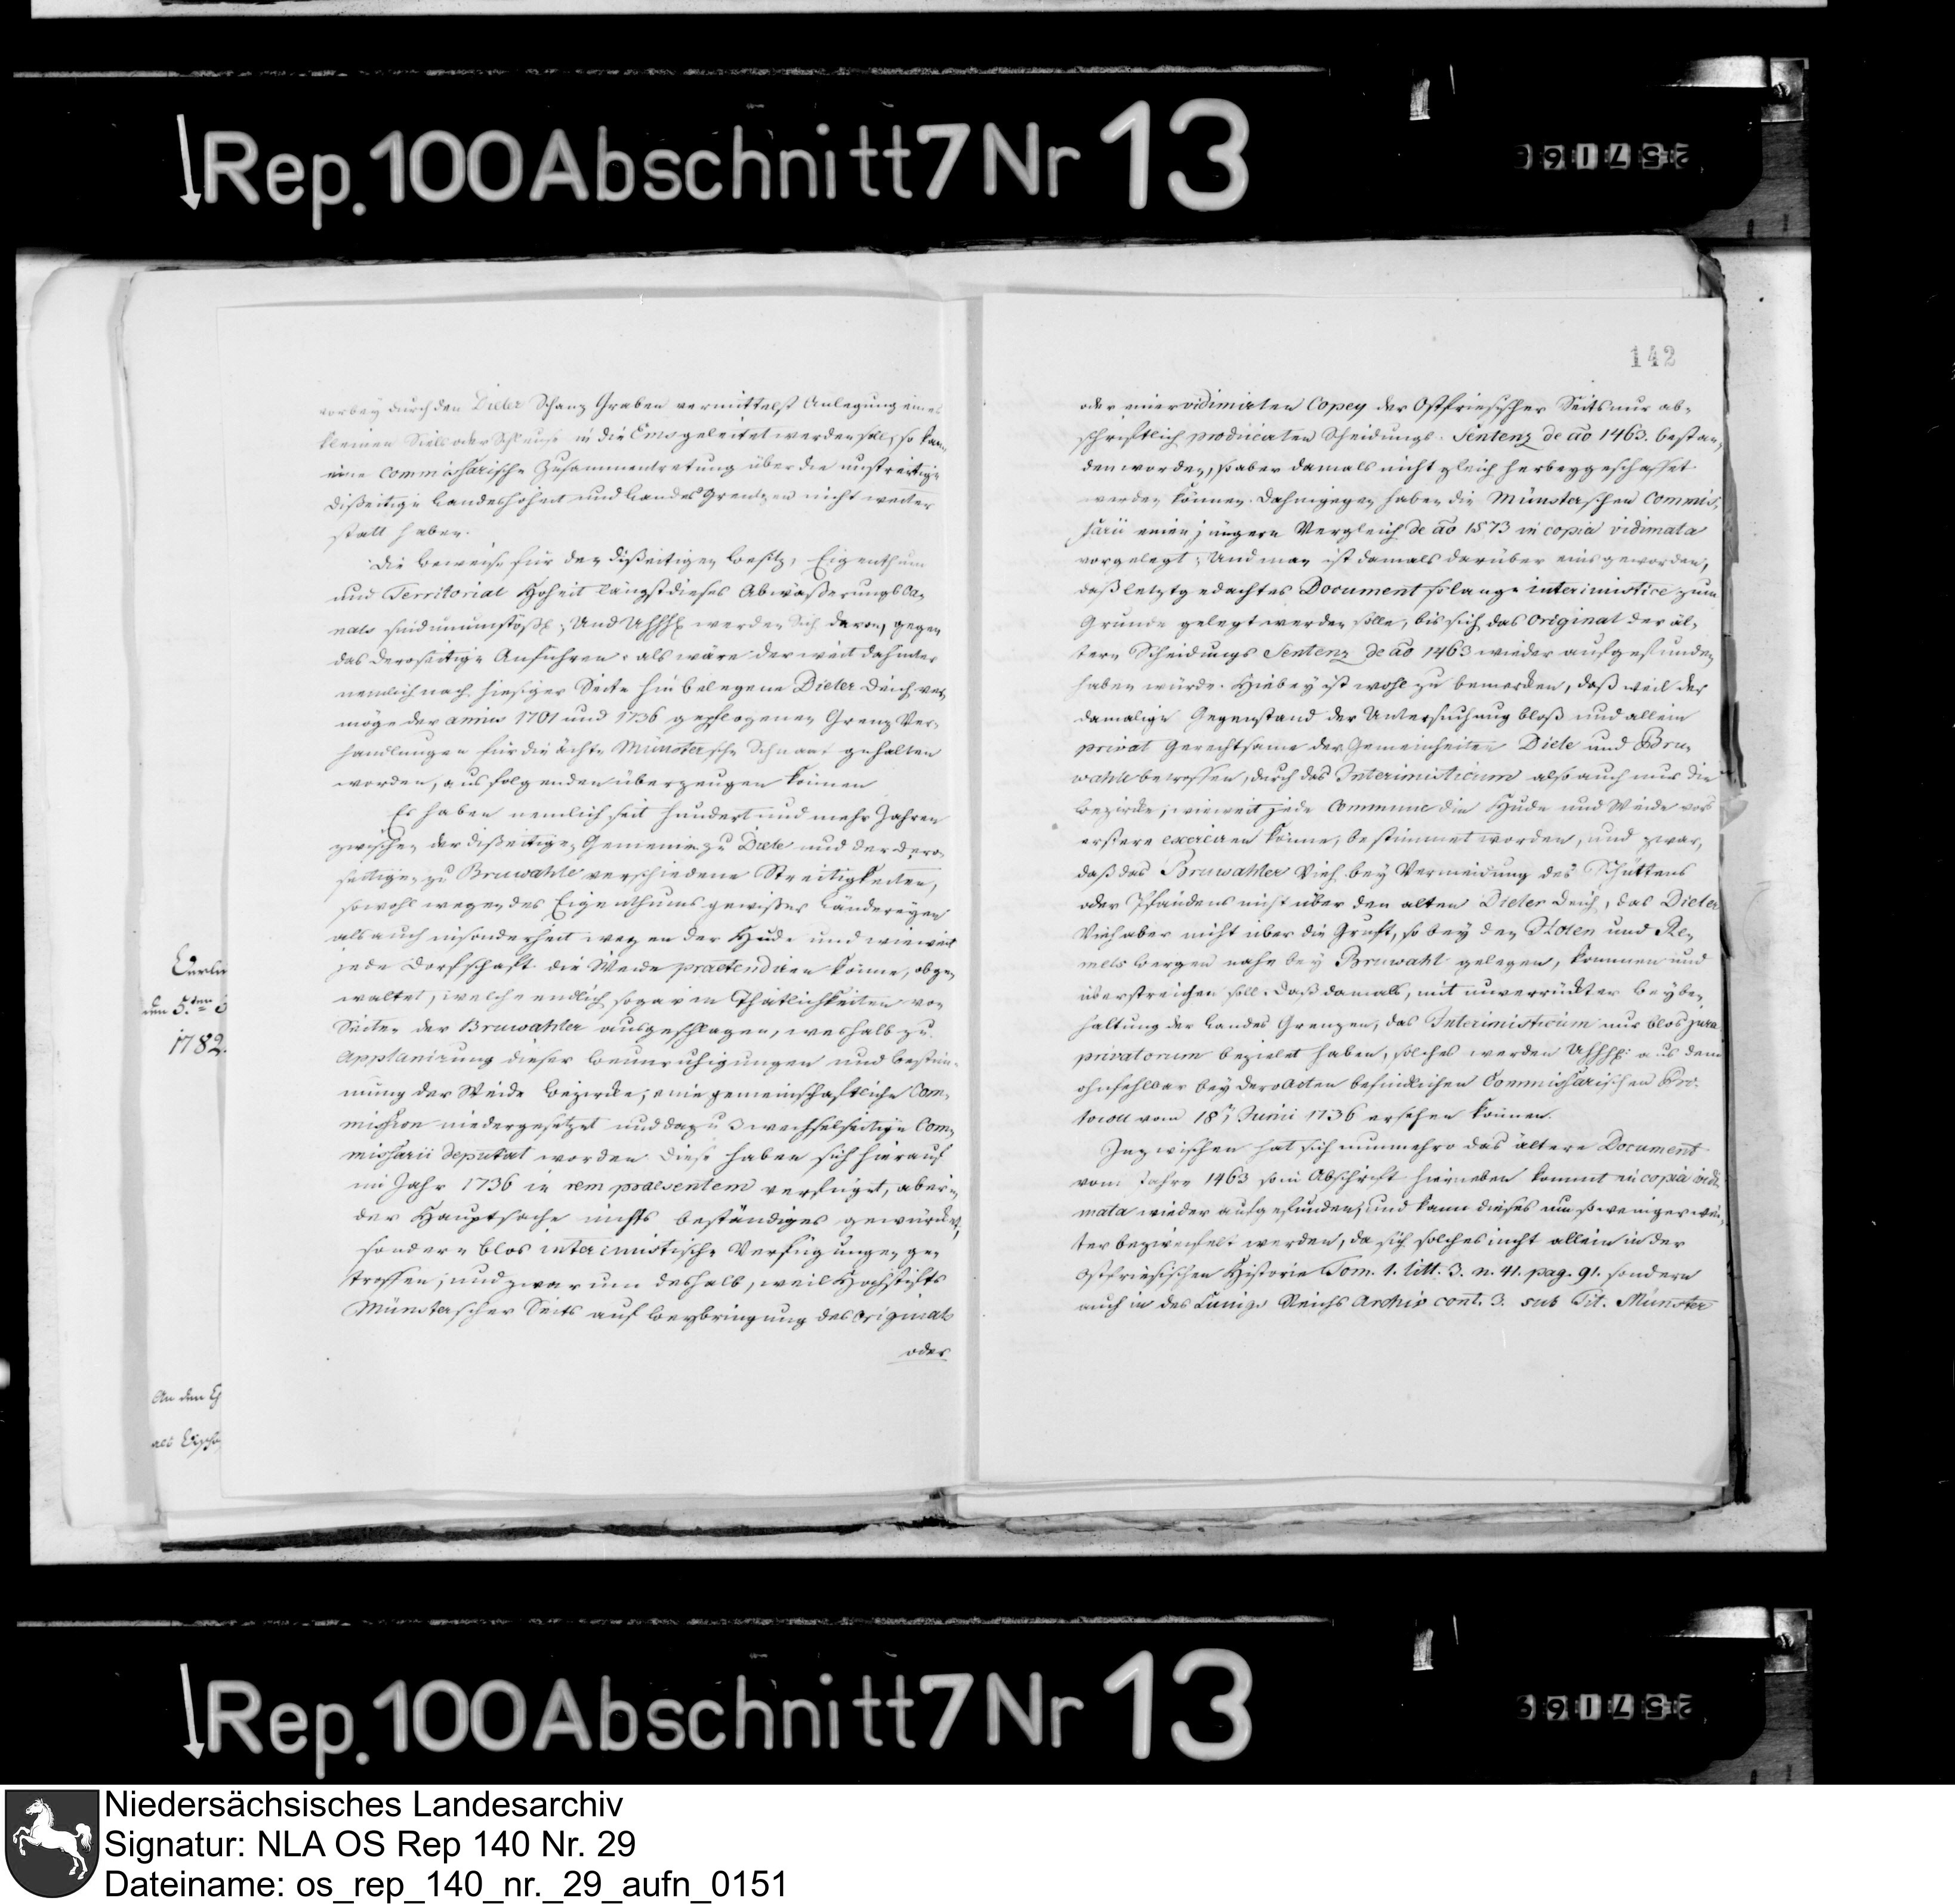 Rep. 100 Abschnitt 7 Nr 13
vorbey durch den Dieler Schanz Graben vermittelst Anlegung eines
kleinen Siels oder Schleuse in die Ems geleitet werden soll, so kan
eine commissarische Zusammentretung über die unstreitige
disseitige Landeshoheit und Landes Grentzen nicht weiter
statt haben.
Die Beweise für den disseitigen Besitz, Eigenthum
und Territorial Hoheit längst dieses Abwässerungs Ca-
nals sind unumstößl; Und werden Sich davon, gegen
das deroseitige Anführen, als wäre der weit dahinter
nemlich nach hiesiger Seite hin belegene Dieler Deich ver-
möge der annis 1701 und 1736 gepflogenen Grenz Ver-
handlungen für die ächte Münstersche Schnaat gehalten
worden, aus folgenden überzeugen können
Es haben nemlich seit hundert und mehr Jahren
zwischen der disseitigen Gemeine zu Diele und der dero-
seitigen zu Bruwahle verschiedene Streitigkeiten,
sowohl wegen des Eigenthums gewisser Ländereyen
als auch insonderheit wegen der Hude und wie weit
jede Dorfschaft die Weide praetendiren könne, obge-
waltet, welche endlich sogar in Thätlichkeiten von
Seiten der Bruwahler ausgeschlagen, weshalb zu
Applanirung dieser Beunruhigungen und Bestim-
mung der Weide Bezircke, eine gemeinschaftliche Com-
mission niedergesetzet und dazu 3 wechselseitige Com-
missarii deputat worden. Diese haben sich hierauf
im Jahr 1736 in rem praesentem verfüget, aber in
der Hauptsache nichts beständiges gewürcket,
sondern blos interimistische Verfügungen ge-
troffen; und zwar um deshalb, weil Hochstifts
Münsterscher Seits auf Beybringung des Originals
oder
den 5.ten
1782.
An den
als
142
oder einer vidimirten Copey der Ostfriesischer Seits nur ab-
schriftlich producirten Scheidungs Sentenz de ao 1463. bestan-
den worden, so aber damals nicht gleich herbeygeschaffet
werden können. Dahingegen haben die Münsterschen Commis-
sarii einen jüngern Vergleich de ao 1573 in copia vidimata
vorgelegt; Und man ist damals darüber eins geworden,
daß letztgedachtes Document so lange interimistice zum
Grunde gelegt werden solle, bis sich das Original der äl-
tern Scheidungs Sentenz de ao 1463 wieder aufgefunden
haben würde. Hiebey ist wohl zu bemerken, daß weil der
damalige Gegenstand der Untersuchung bloß und allein
privat Gerechtsame der Gemeinheiten Diele und Bru-
wahle betroffen, durch das Interimisticum also auch nur die
Bezircke, wie weit jede Commune die Hude und Weide vors
erstere exerciren könne, bestimmet worden, und zwar,
daß das Bruwahler Vieh bey Vermeidung des Schüttens
oder Pfändens nicht über den alten Dieler Deich, das Dieler
Vieh aber nicht über die Gruft, so bey den und Re-
mels Bergen nahe bey Bruwahl gelegen, kommen und
überstreichen soll. Daß damals, mit unverrückter Beybe-
haltung der Landes Grenzen, das Interimisticum nur blos jura
privatorum bezielet haben, solches werden aus dem
ohnfehlbar bey dero Acten befindlichen Commissarischen Pro-
tocoll vom 18n Junii 1736 ersehen können.
Inzwischen hat sich nunmehro das ältere Document
vom Jahre 1463 so in Abschrift hierneben kommt in copia vidi-
mata wieder aufgefunden, und kann dieses um so weniger wei-
ter bezweifelt werden, da sich solches nicht allein in der
Ostfriesischen Historie Tom. 1. litt. 3. n. 41. pag. 91. sondern
auch in des Lunigs Reichs Archiv cont. 3. sub Tit. Münster
Rep. 100 Abschnitt 7 Nr 13
Niedersächsisches Landesarchiv
Signatur: NLA OS Rep 140 Nr. 29
Dateiname: os_rep_140_nr._29_aufn_0151